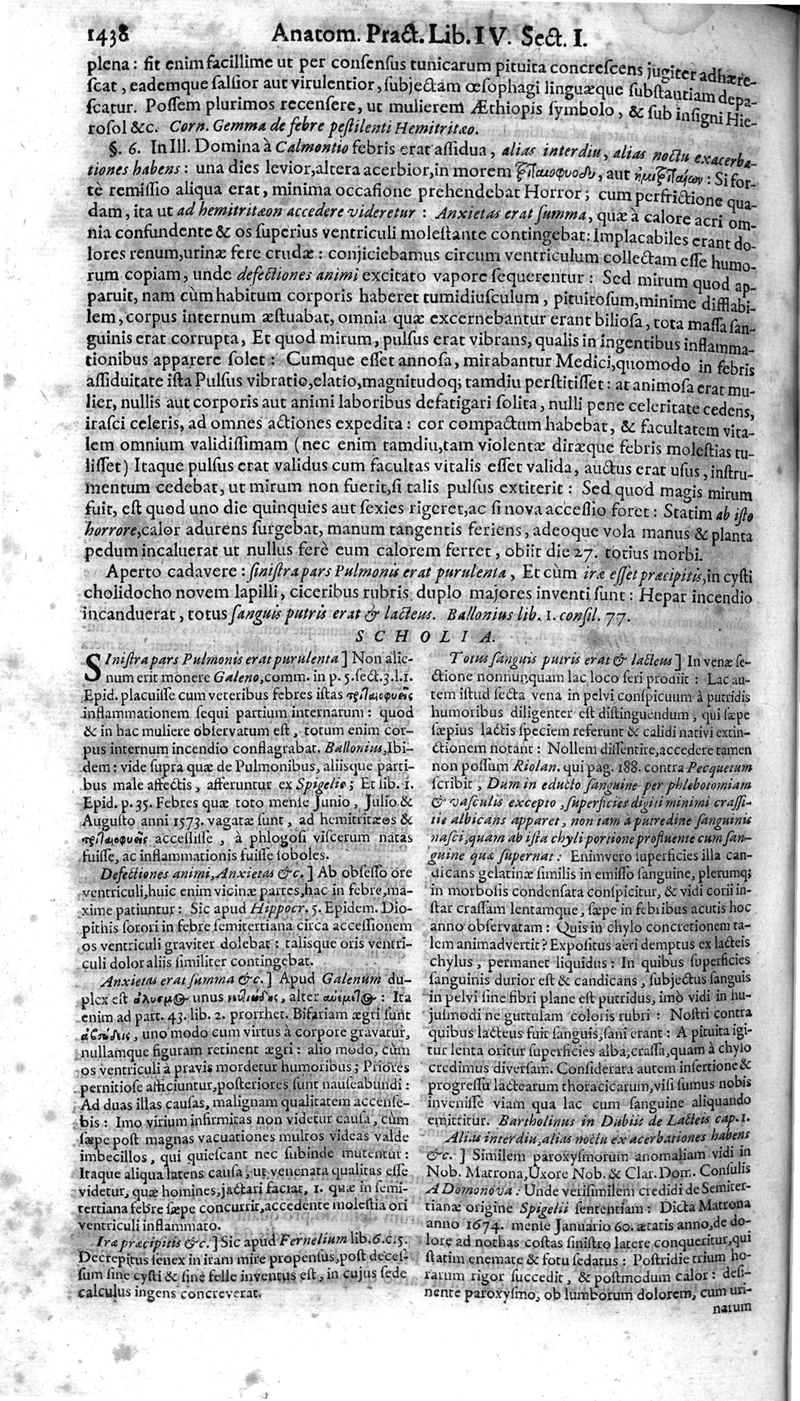 1438 Anatom. Pract. Lib. IV. Sect. I.
plena: fit enim facillime ut per consensus tunicarum pituita concrescens jugiter adhære-
scat, eademque salsior aut virulentior, subjectam œsophagi linguæque substantiam depa-
scatur. Possem plurimos recensere, ut mulierem Æthiopis symbolo, & sub insigni Hie-
rosol &c. Corn. Gemma de febre pestilenti Hemitritæo.
§. 6. In Ill. Domina à Calmontio febris erat assidua, alias interdiu, alias noctu exacerba-
tiones habens: una dies levior, altera acerbior, in morem aut : Si for-
tè remissio aliqua erat, minima occasione prehendebat Horror; cum perfrictione qua-
dam, ita ut ad hemitritæon accedere videretur: Anxietas erat summa, quæ à calore acri om-
nia confundente & os superius ventriculi molestante contingebat: Implacabiles erant do-
lores renum, urinæ fere crudæ: conjiciebamus circum ventriculum collectam esse humo-
rum copiam, unde defectiones animi excitato vapore sequerentur: Sed mirum quod ap-
paruit, nam cùm habitum corporis haberet tumidiusculum, pituitosum, minime difflabi-
lem, corpus internum æstuabat, omnia quæ excernebantur erant biliosa, tota massa san-
guinis erat corrupta, Et quod mirum, pulsus erat vibrans, qualis in ingentibus inflamma-
tionibus apparere solet: Cumque esset annosa, mirabantur Medici, quomodo in febris
assiduitate ista Pulsus vibratio, elatio, magnitudoq; tamdiu perstitisset: at animosa erat mu-
lier, nullis aut corporis aut animi laboribus defatigari solita, nulli pene celeritate cedens,
irasci celeris, ad omnes actiones expedita: cor compactum habebat, & facultatem vita-
lem omnium validissimam (nec enim tamdiu, tam violentæ diræque febris molestias tu-
lisset) Itaque pulsus erat validus cum facultas vitalis esset valida, auctus erat usus, instru-
mentum cedebat, ut mirum non fuerit, si talis pulsus extiterit: Sed quod magis mirum
fuit, est quod uno die quinquies aut sexies rigeret, ac si nova accessio foret: Statim ab isto
horrore, calor adurens surgebat, manum tangentis feriens, adeoque vola manus & planta
pedum incaluerat ut nullus ferè eum calorem ferret, obiit die 27. totius morbi.
Aperto cadavere: sinistra pars Pulmonis erat purulenta, Et cùm iræ esset præcipitis, in cysti
cholidocho novem lapilli, ciceribus rubris duplo majores inventi sunt: Hepar incendio
incanduerat, totus sanguis putris erat & lacteus. Ballonius lib. 1. consil. 77.
SCHOLIA.
Sinistra pars Pulmonis erat purulenta] Non alie-
num erit monere Galeno, comm. in p. 5. sect. 3. l. 1.
Epid. placuisse cum veteribus febres istas
inflammationem sequi partium internarum: quod
& in hac muliere observatum est, totum enim cor-
pus internum incendio conflagrabat. Ballonius, Ibi-
dem: vide supra quæ de Pulmonibus, aliisque parti-
bus male affectis, afferuntur ex Spigelio; Et lib. 1.
Epid. p. 35. Febres quæ toto mense Junio, Julio &
Augusto anni 1573. vagatæ sunt, ad hemitritæos &
accessisse, à phlogosi viscerum natas
fuisse, ac inflammationis fuisse soboles.
Defectiones animi, Anxietas &c.] Ab obsesso ore
ventriculi, huic enim vicinæ partes, hac in febre, ma-
xime patiuntur: Sic apud Hippocr. 5. Epidem. Dio-
pithis sorori in febre semitertiana circa accessionem
os ventriculi graviter dolebat: talisque oris ventri-
culi dolor aliis similiter contingebat.
Anxietas erat summa &c.] Apud Galenum du-
plex est unus , alter : Ita
enim ad part. 43. lib. 2. prorrhet. Bifariam ægri sunt
, uno modo cum virtus à corpore gravatur,
nullamque figuram retinent ægri: alio modo, cùm
os ventriculi à pravis mordetur humoribus; Priores
pernitiose afficiuntur, posteriores sunt nauseabundi:
Ad duas illas causas, malignam qualitatem accense-
bis: Imo virium infirmitas non videtur causa, cùm
sæpe post magnas vacuationes multos videas valde
imbecillos, qui quiescant nec subinde mutentur:
Itaque aliqua latens causa, ut venenata qualitas esse
videtur, quæ homines, jactari faciat, 1. quæ in semi-
tertiana febre sæpe concurrit, accedente molestia ori
ventriculi inflammato.
Iræ præcipitis &c.] Sic apud Fernelium lib. 6. c. 5.
Decrepitus senex in iram mire propensus, post deces-
sum sine cysti & sine felle inventus est, in cujus sede
calculus ingens concreverat.
Totus sanguis putris erat & lacteus] In venæ se-
ctione nonnunquam lac loco seri prodiit: Lac au-
tem istud secta vena in pelvi conspicuum à putridis
humoribus diligenter est distinguendum, qui sæpe
sæpius lactis speciem referunt & calidi nativi extin-
ctionem notant: Nollem dissentire, accedere tamen
non possum Riolan. qui pag. 188. contra Pecquetum
scribit, Dum in educto sanguine per phlebotomiam
& vasculis excepto, superficies digiti minimi crassi-
tie albicans apparet, non tam à putredine sanguinis
nasci, quam ab ista chyli portione profluente cum san-
guine quæ supernat: Enimvero superficies illa can-
dicans gelatinæ similis in emisso sanguine, plerumq;
in morbosis condensata conspicitur, & vidi corii in-
star crassam lentamque, sæpe in febribus acutis hoc
anno observatam: Quis in chylo concretionem ta-
lem animadvertit? Expositus aëri demptus ex lacteis
chylus, permanet liquidus: In quibus superficies
sanguinis durior est & candicans, subjectus sanguis
in pelvi sine fibri plane est putridus, imò vidi in hu-
jusmodi ne guttulam coloris rubri: Nostri contra
quibus lacteus fuit sanguis, sani erant: A pituita igi-
tur lenta oritur superficies alba, crassa, quam à chylo
credimus diversam. Considerata autem insertione &
progressu lactearum thoracicarum, visi sumus nobis
invenisse viam qua lac cum sanguine aliquando
emittitur. Bartholinus in Dubiis de Lacteis cap. 1.
Alias interdiu, alias noctu exacerbationes habens
&c.] Similem paroxysmorum anomaliam vidi in
Nob. Matrona, Uxore Nob. & Clar. Dom. Consulis
A Domonova: Unde verisimilem credidi de Semiter-
tianæ origine Spigelii sententiam: Dicta Matrona
anno 1674. mense Januario 60. ætatis anno, de do-
lore ad nothas costas sinistro latere conqueritur, qui
statim enemate & fotu sedatus: Postridie trium ho-
rarum rigor succedit, & postmodum calor: desi-
nente paroxysmo, ob lumborum dolorem, cum uri-
narum